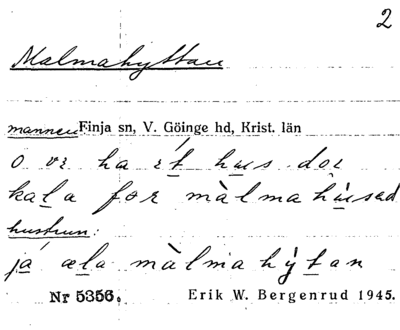 2
Malmahyttan
mannen: Finja sn, V. Göinge hd, Krist. län
o vr ha et hus dør
kala før màlmahùsed
hustrun:
já æla màlmahỳtan
Nr 5356. Erik W. Bergenrud 1945.